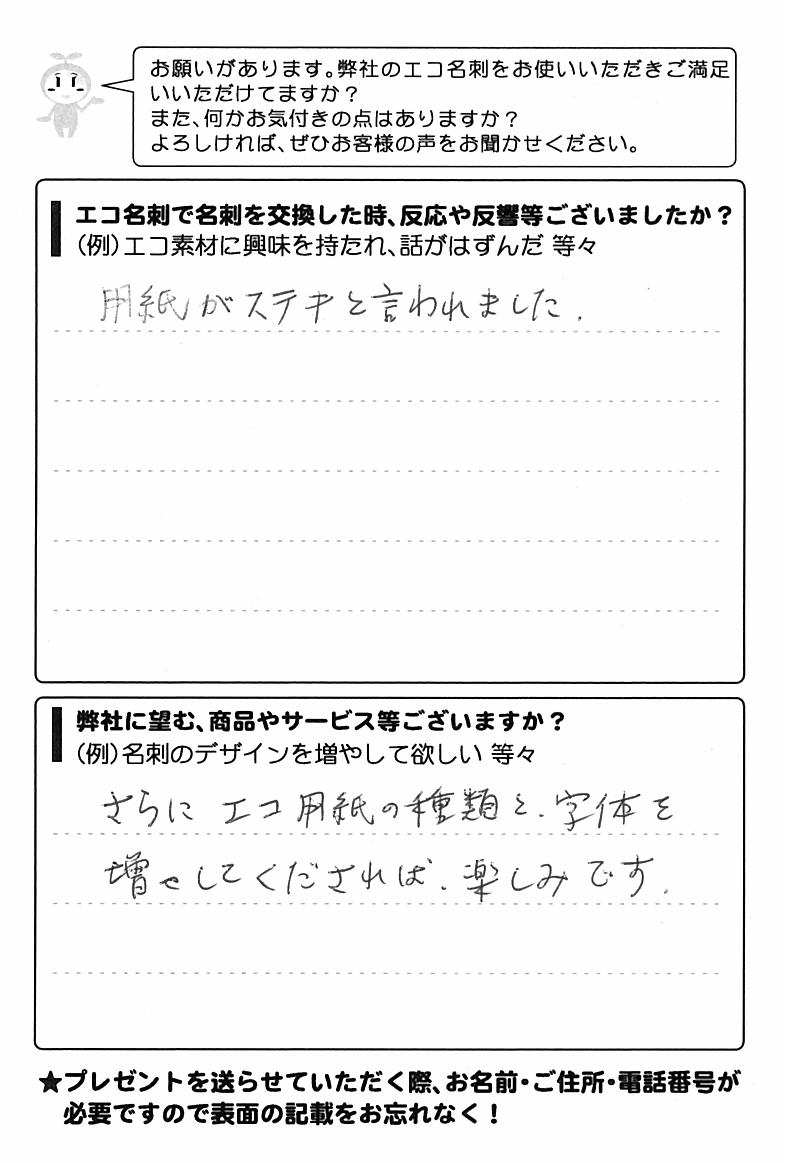 お願いがあります。弊社のエコ名刺をお使いいただきご満足
いいただけてますか？
また、何かお気付きの点はありますか？
よろしければ、ぜひお客様の声をお聞かせください。
エコ名刺で名刺を交換した時、反応や反響等ございましたか？
（例）エコ素材に興味を持たれ、話がはずんだ 等々
用紙がステキと言われました.
弊社に望む、商品やサービス等ございますか？
（例）名刺のデザインを増やして欲しい 等々
さらに エコ用紙の種類と、字体を
増やしてくだされば、楽しみです.
★プレゼントを送らせていただく際、お名前・ご住所・電話番号が
必要ですので表面の記載をお忘れなく！